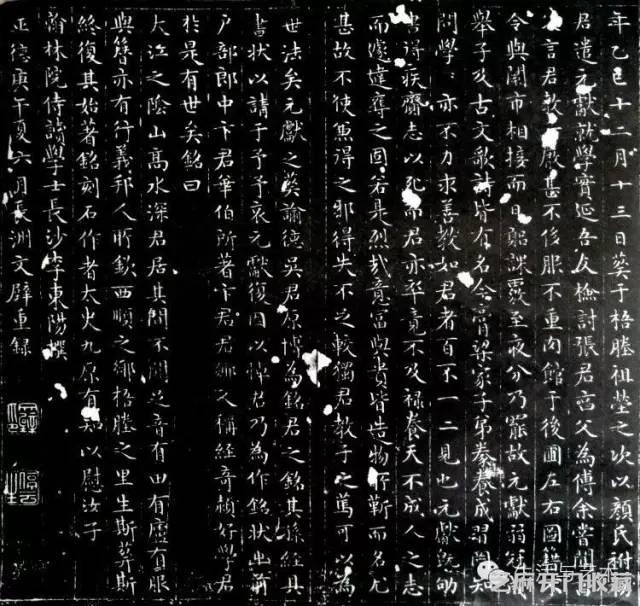 年乙巳十二月十三日葬于梧塍祖塋之次以顏氏祔初
君遣元獻就學實延吾友檢討張君亨父為傅余嘗聞
言君教嚴甚不後服不重肉館于後圃左右圖籍
令與閙市相接而日躬課覈至夜分乃罷故元獻弱冠
舉子及古文歌詩皆有名今膏粱家子弟豢養成習罔知
問學亦不力求善教如君者百不一二見也元獻既劬
書得疾齎志以死而君亦卒竟不及祿養天不成人之志
而隳達尊之固若是烈哉竟富與貴皆造物所靳而名尤
甚故不使兼得之邪得失不之較獨君教子之篤可以為
世法矣元獻之葬諭德吳君原博為銘君之銘其孫經具
書狀以請于予予哀元獻復因以悼君乃為作銘狀出前
戶部郎中卞君華伯所著卞君君鄉人稱經奇穎好學君
於是有世矣銘曰
大江之陰山高水深君居其間不聞足音有田有廬有服
與簪亦有行義邦人所欽西順之鄉梧塍之里生斯葬斯
終復其始著銘刻石作者太史九原有知以慰汝子
翰林院侍講學士長沙李東陽撰
正德庚午夏六月長洲文璧重錄